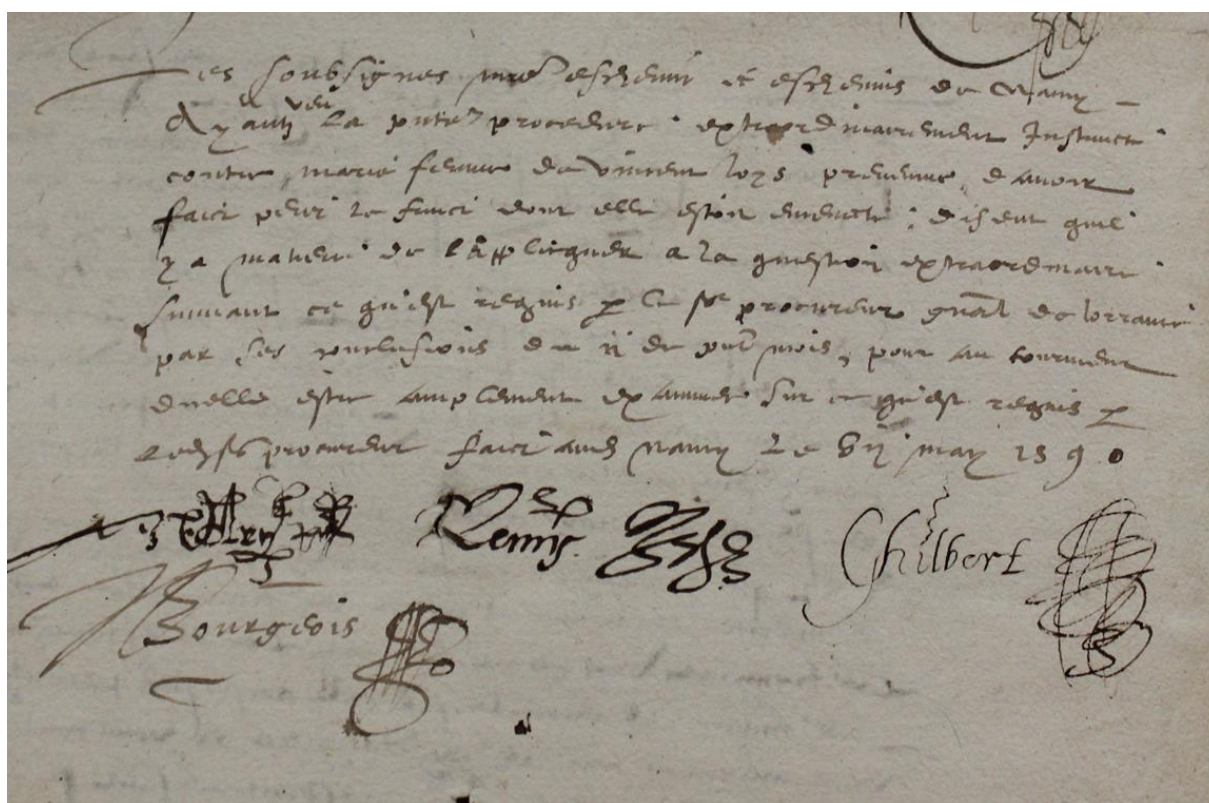 Les soubsignes mre eschevin et eschevins de Nancy
Ayantz veu la pnte procedure extraordinairement instruicte
contre marie femme de vincent loys prevenue d'avoir
faict perir le fruict dont elle estoit enceincte, disent quil
y a matiere de l'applicquer a la question extraordinaire
suivant ce qu'est requis p le sr procureur gnal de lorraine
par ses conclusions du ii de pnt mois, pour au tourment
d'icelle estre amplement examinee sur ce qu'est requis p
ledit sr procureur faict audit Nancy le vij may 1590
Remy
Chilbert
Bourgeois